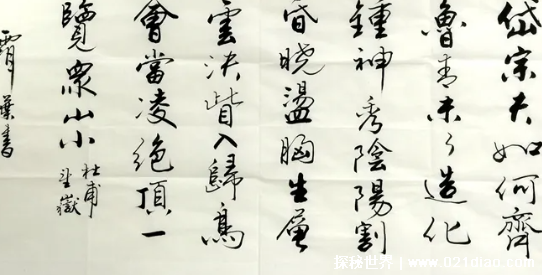 岱宗夫如何齊
魯青未了造化
鍾神秀陰陽割
昏曉盪胸生層
雲決眥入歸鳥
會當凌絕頂一
覽衆山小
杜甫
望嶽
書
探秘世界 www.021dian.com